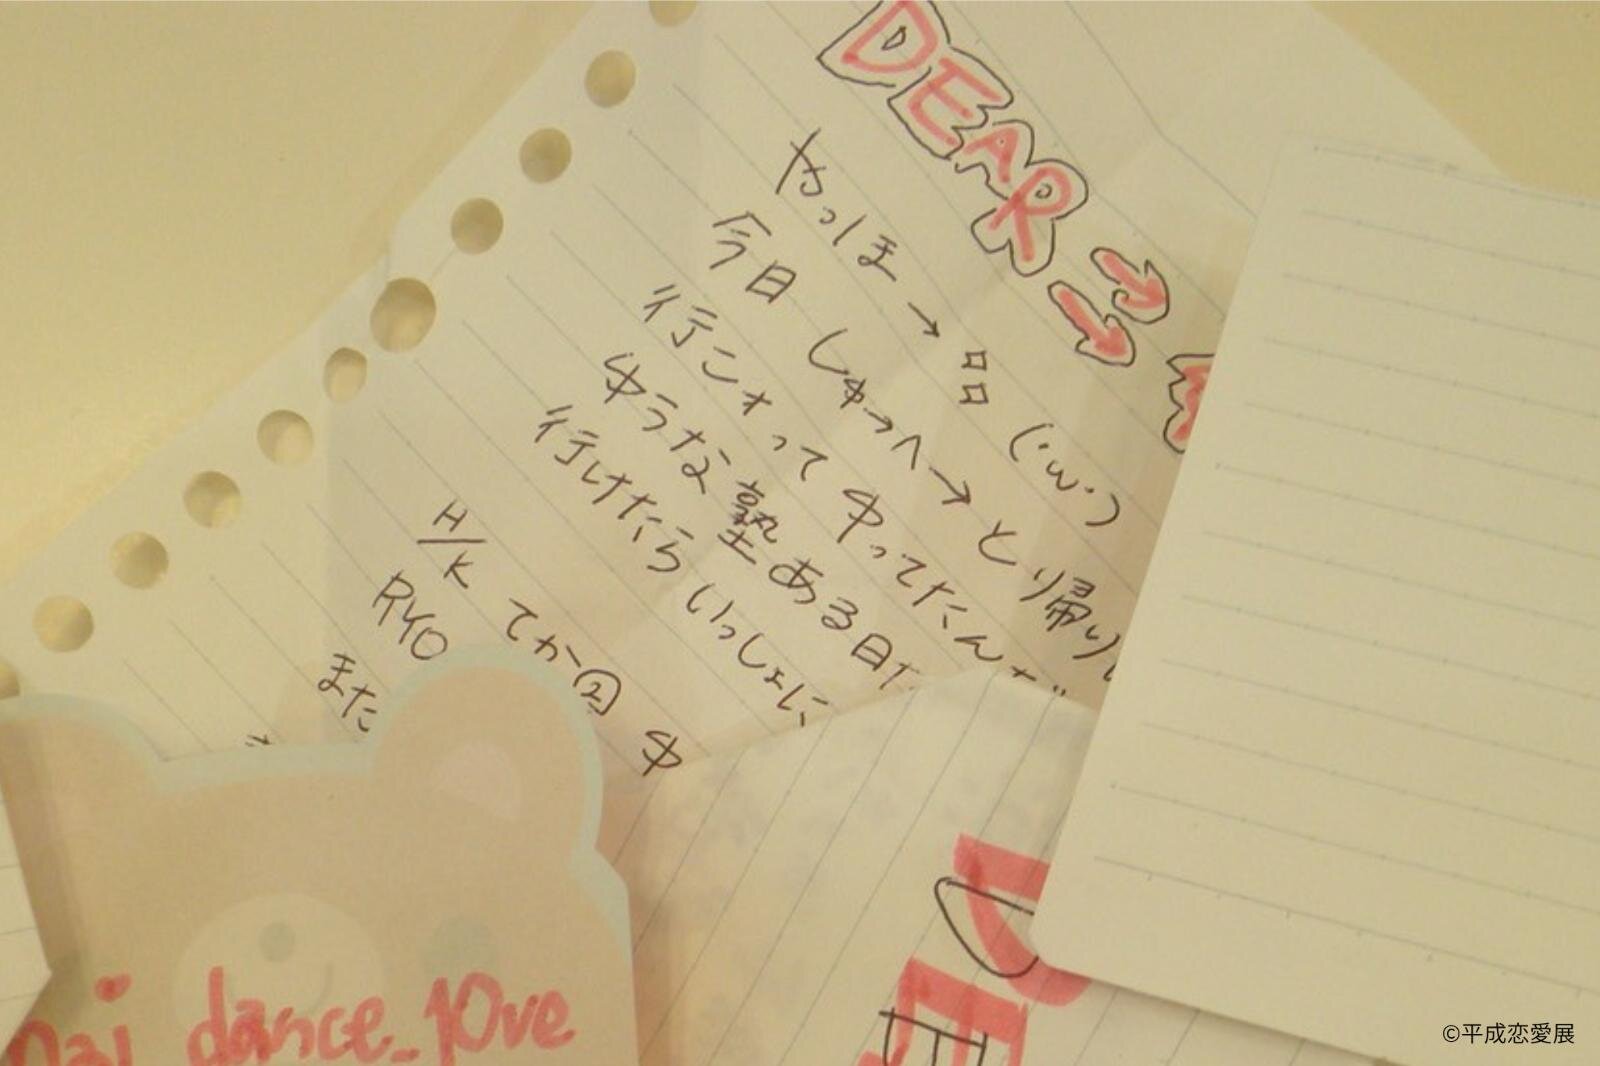 DEAR→→
やっほ→ロロ(･ω･)
今日しゅ→へ→とり帰り
行こォってゆってたんだ
ゆうな塾ある日
行けたらいっしょに
H/K てか②ゆ
RYO
また
dance_10ve
DE
©平成恋愛展